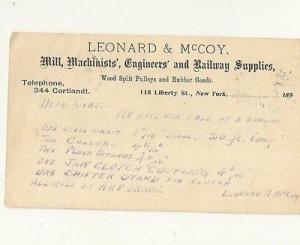 LEONARD & McCOY,
Mill, Machinists', Engineers' and Railway Supplies,
Wood Split Pulleys and Rubber Goods.
Telephone,
344 Cortlandt.
118 Liberty St., New York, 189
DEAR SIRS:
WE HAVE FOR SALE AT A BARGAIN
ONE STEEL SHAFT 4 " DIAM. 20 ft. Long
TWO COLLARS 4
TWO FLOOR STANDS 4
ONE JAW CLUTCH COUPLING 4
ONE SHIFTER STAND FOR CLUTCH
ALL MADE BY
LEONARD & McCOY